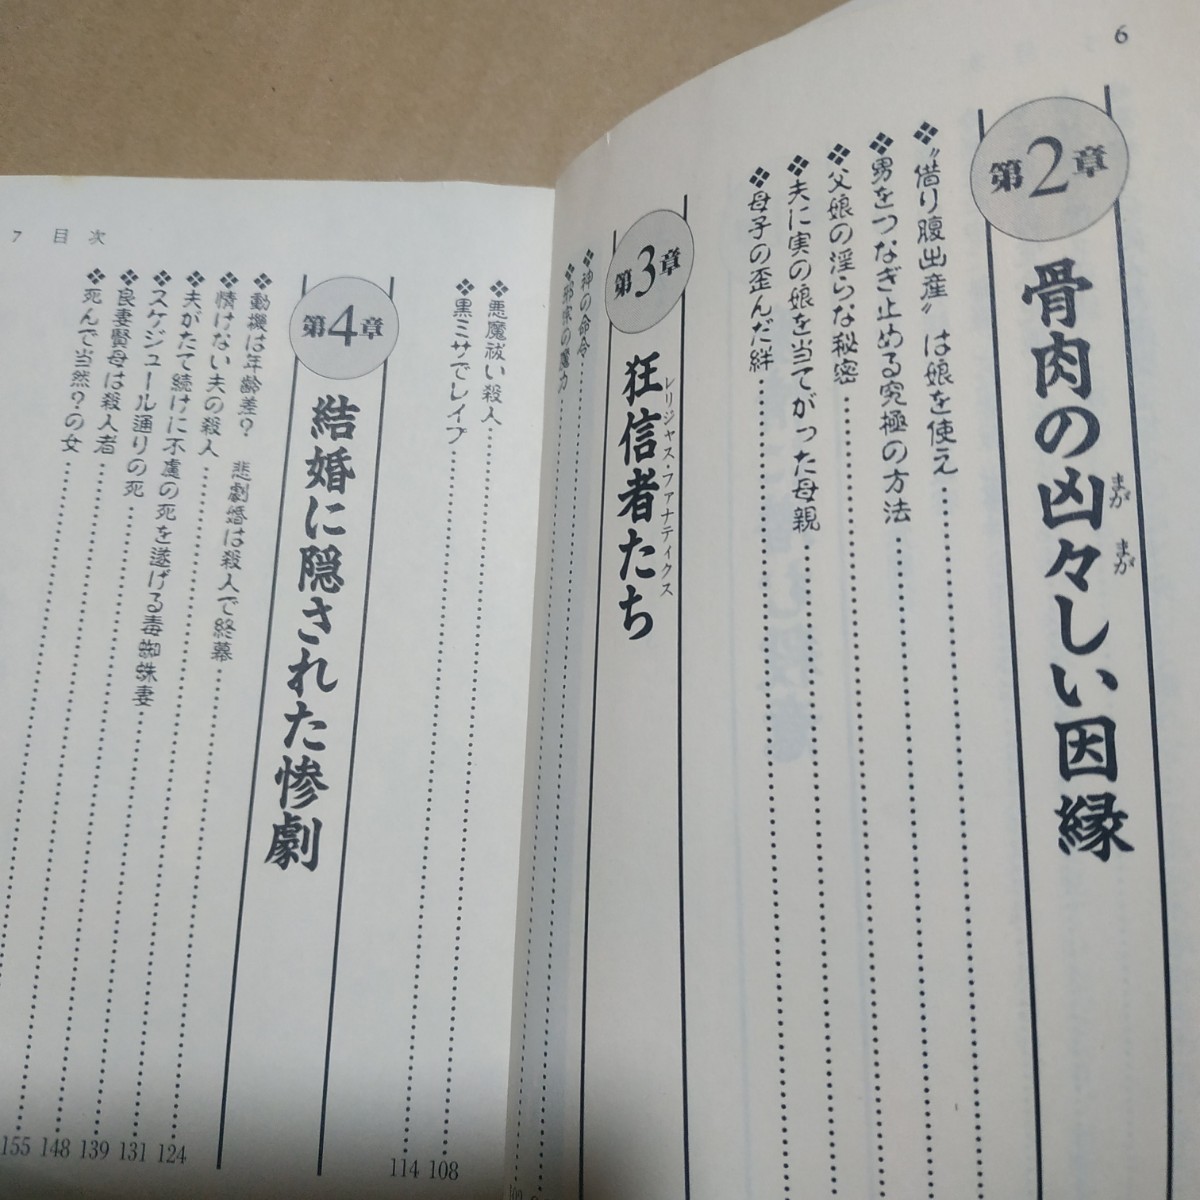 6
第2章 骨肉の凶々しい因縁
まが まが
❖“借り腹出産”は娘を使え
❖男をつなぎ止める究極の方法
❖父娘の淫らな秘密
❖夫に実の娘を当てがった母親
❖母子の歪んだ絆
第3章 狂信者たち
レリジャス・ファナティクス
❖神の命令
❖悪魔祓い殺人 108
❖黒ミサでレイプ 114
第4章 結婚に隠された惨劇
❖動機は年齢差? 悲劇婚は殺人で終幕
❖情けない夫の殺人 124
❖夫がたて続けに不慮の死を遂げる毒蜘蛛妻 131
❖スケジュール通りの死 139
❖良妻賢母は殺人者 148
❖死んで当然?の女 155
7 目次